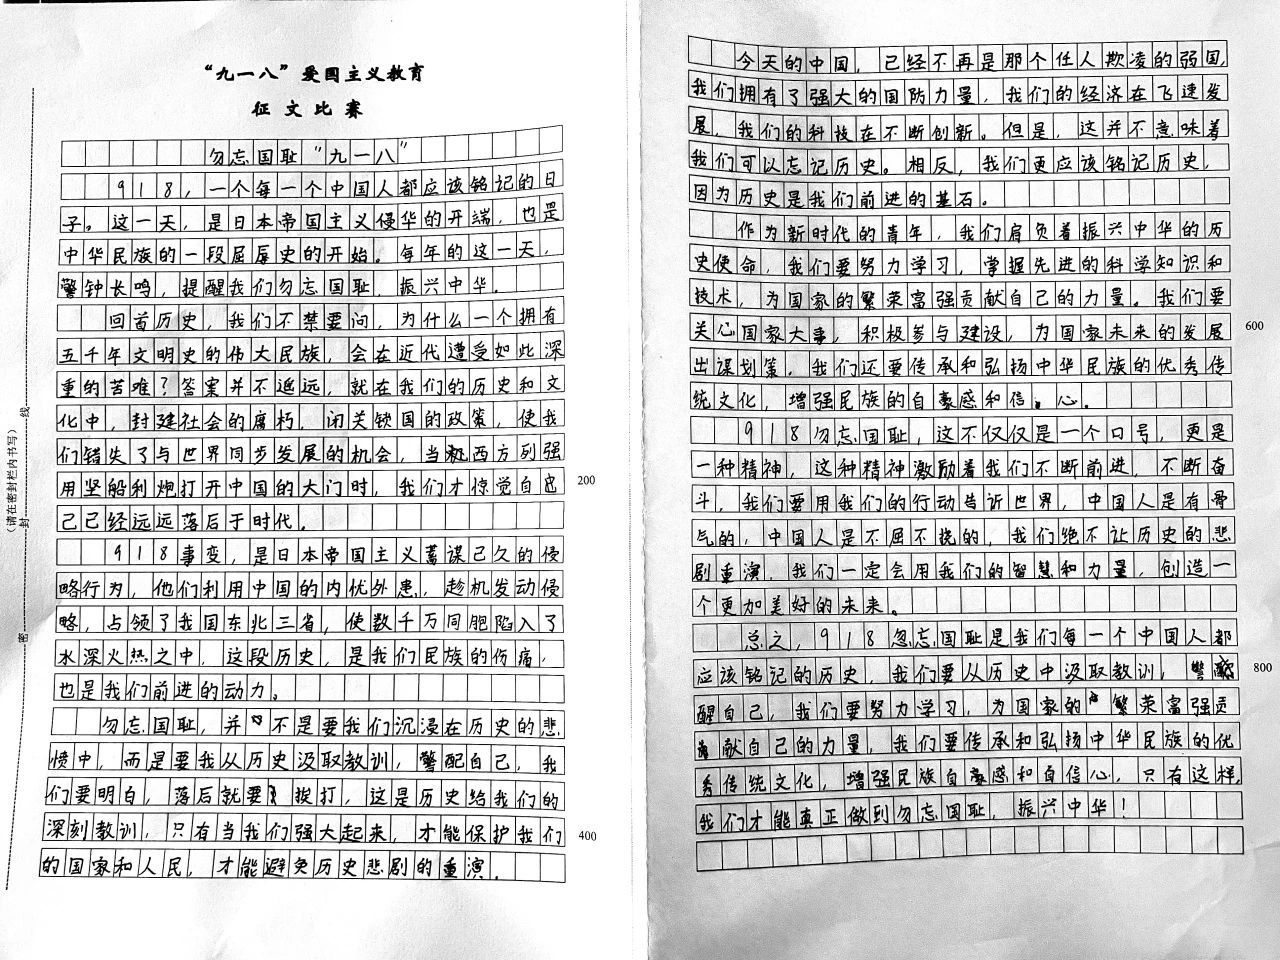 “九一八”爱国主义教育
征文比赛
勿忘国耻“九一八”
918，一个每一个中国人都应该铭记的日
子。这一天，是日本帝国主义侵华的开端，也是
中华民族的一段屈辱史的开始。每年的这一天，
警钟长鸣，提醒我们勿忘国耻，振兴中华。
回首历史，我们不禁要问，为什么一个拥有
五千年文明史的伟大民族，会在近代遭受如此深
重的苦难？答案并不遥远，就在我们的历史和文
化中，封建社会的腐朽，闭关锁国的政策，使我
们错失了与世界同步发展的机会，当西方列强
用坚船利炮打开中国的大门时，我们才惊觉自
己已经远远落后于时代。
918事变，是日本帝国主义蓄谋已久的侵
略行为，他们利用中国的内忧外患，趁机发动侵
略，占领了我国东北三省，使数千万同胞陷入了
水深火热之中，这段历史，是我们民族的伤痛，
也是我们前进的动力。
勿忘国耻，并不是要我们沉浸在历史的悲
愤中，而是要我从历史汲取教训，警配自己，我
们要明白，落后就要挨打，这是历史给我们的
深刻教训，只有当我们强大起来，才能保护我们
的国家和人民，才能避免历史悲剧的重演。
今天的中国，已经不再是那个任人欺凌的弱国，
我们拥有了强大的国防力量，我们的经济在飞速发
展，我们的科技在不断创新。但是，这并不意味着
我们可以忘记历史。相反，我们更应该铭记历史，
因为历史是我们前进的基石。
作为新时代的青年，我们肩负着振兴中华的历
史使命，我们要努力学习，掌握先进的科学知识和
技术，为国家的繁荣富强贡献自己的力量。我们要
关心国家大事，积极参与建设，为国家未来的发展
出谋划策，我们还要传承和弘扬中华民族的优秀传
统文化，增强民族的自豪感和信。心。
918勿忘国耻，这不仅仅是一个口号，更是
一种精神，这种精神激励着我们不断前进，不断奋
斗，我们要用我们的行动告诉世界，中国人是有骨
气的，中国人是不屈不挠的，我们绝不让历史的悲
剧重演，我们一定会用我们的智慧和力量，创造一
个更加美好的未来。
总之，918忽忘国耻是我们每一个中国人都
应该铭记的历史，我们要从历史中汲取教训，警
醒自己，我们要努力学习，为国家的繁荣富强贡
献自己的力量，我们要传承和弘扬中华民族的优
秀传统文化，增强民族自豪感和自信心，只有这样，
我们才能真正做到勿忘国耻，振兴中华！
200
400
600
800
（请在密封栏内书写）
密 封 线